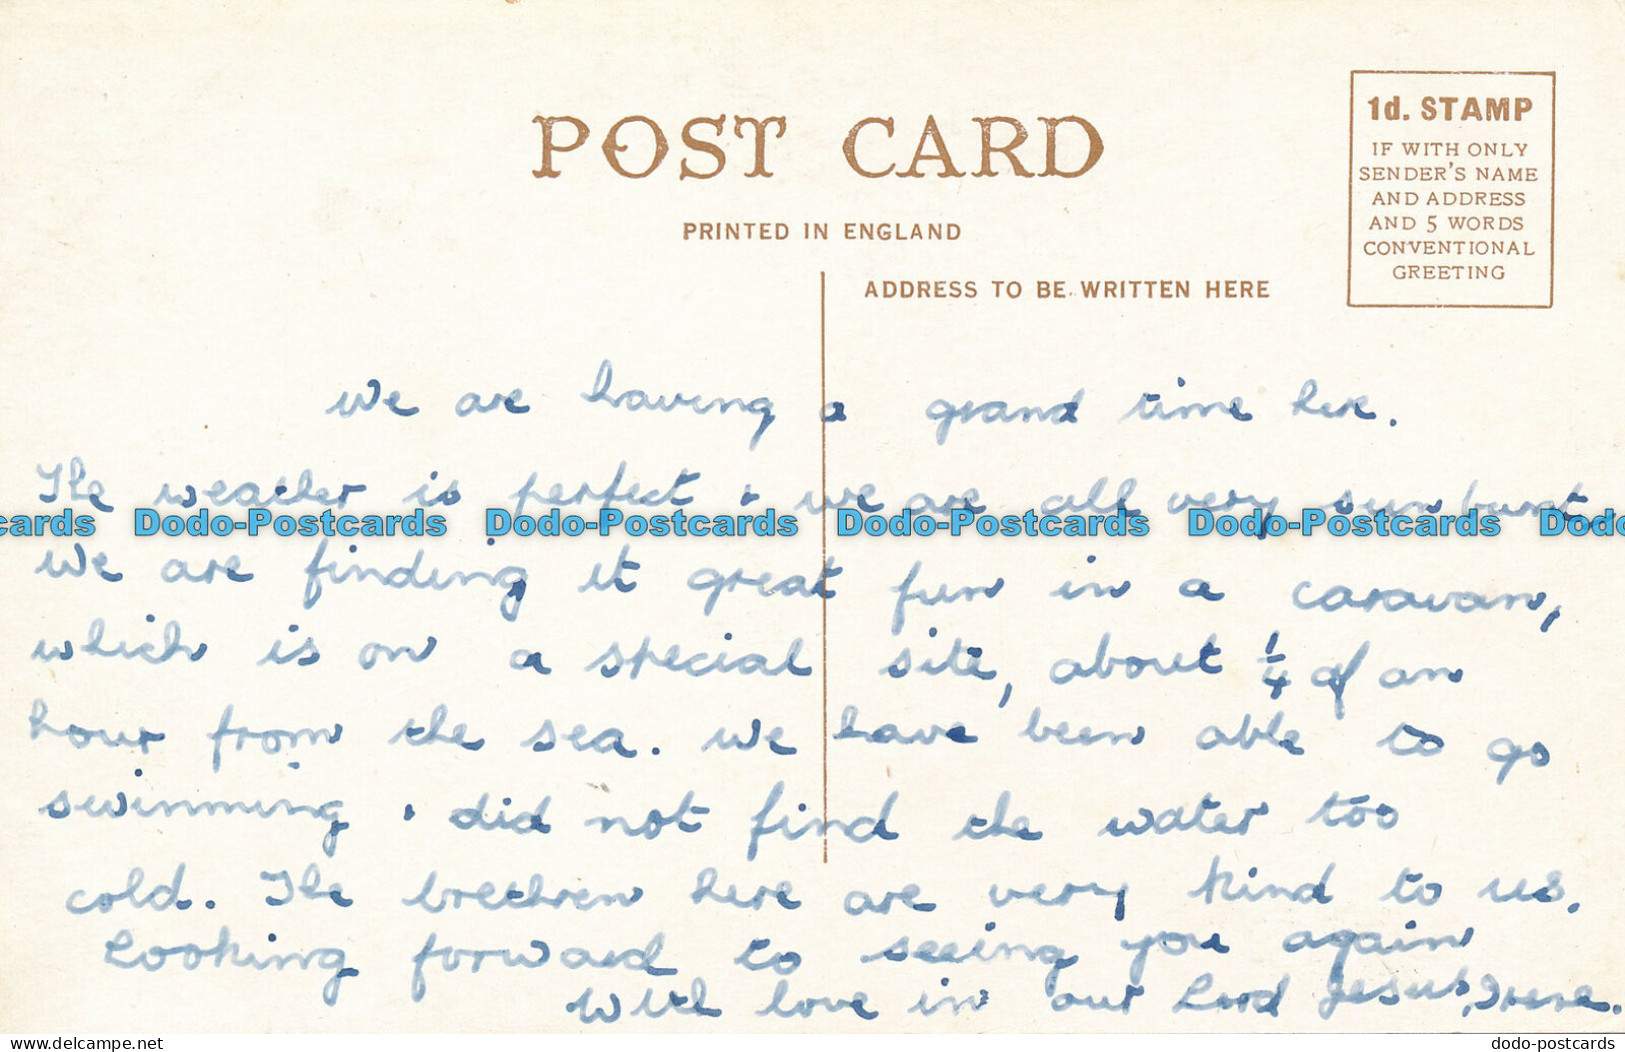 POST CARD
1d. STAMP
IF WITH ONLY
SENDER'S NAME
AND ADDRESS
AND 5 WORDS
CONVENTIONAL
GREETING
PRINTED IN ENGLAND
ADDRESS TO BE WRITTEN HERE
We are having a grand time here.
The weather is perfect & we are all very sunburnt.
cards Dodo-Postcards Dodo-Postcards Dodo-Postcards Dodo-Postcards Dodo
We are finding it great fun in a caravan,
which is on a special site, about 1/4 of an
hour from the sea. We have been able to go
swimming & did not find the water too
cold. The brethren here are very kind to us.
Looking forward to seeing you again
With love in our Lord Jesus, Irene.
delcampe.net
dodo-postcards